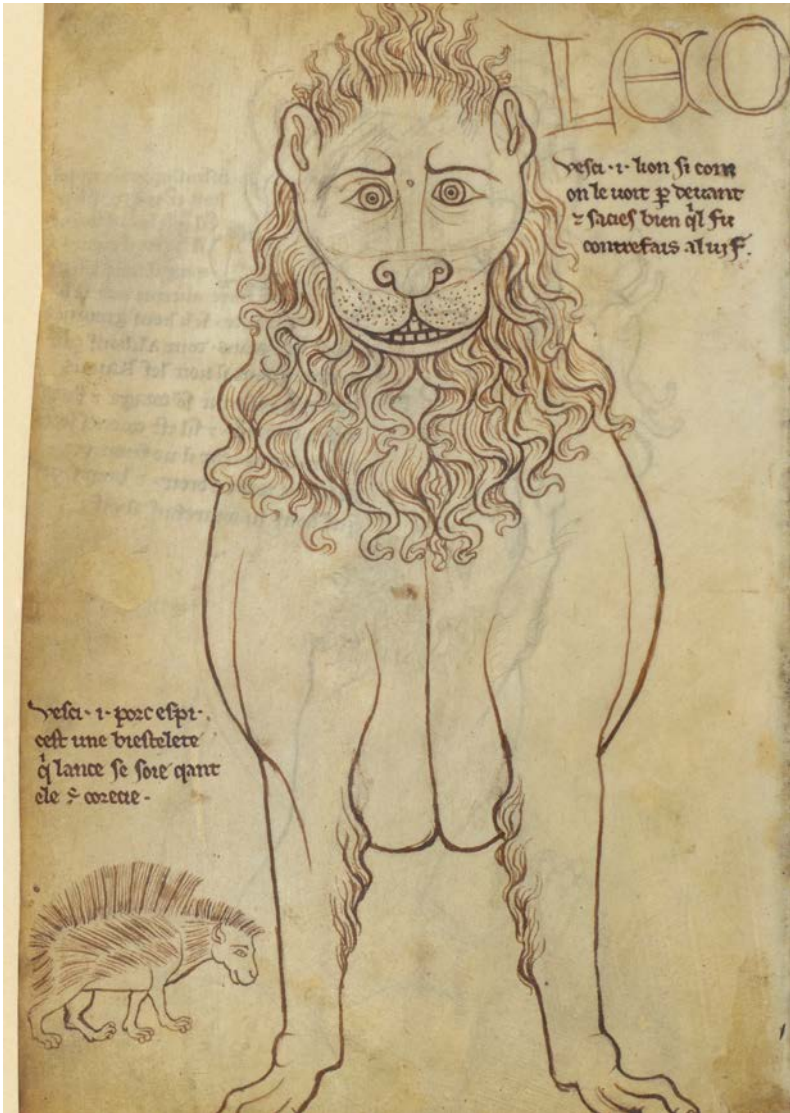 LEO
vesci .i. lion si com
on le voit p̲ devant
⁊ sacies bien q̍l fu
contrefais al vif.
vesci .i. porc espi.
cest une biestelete
q̍ lance se soie qant
ele ÷ corecie.